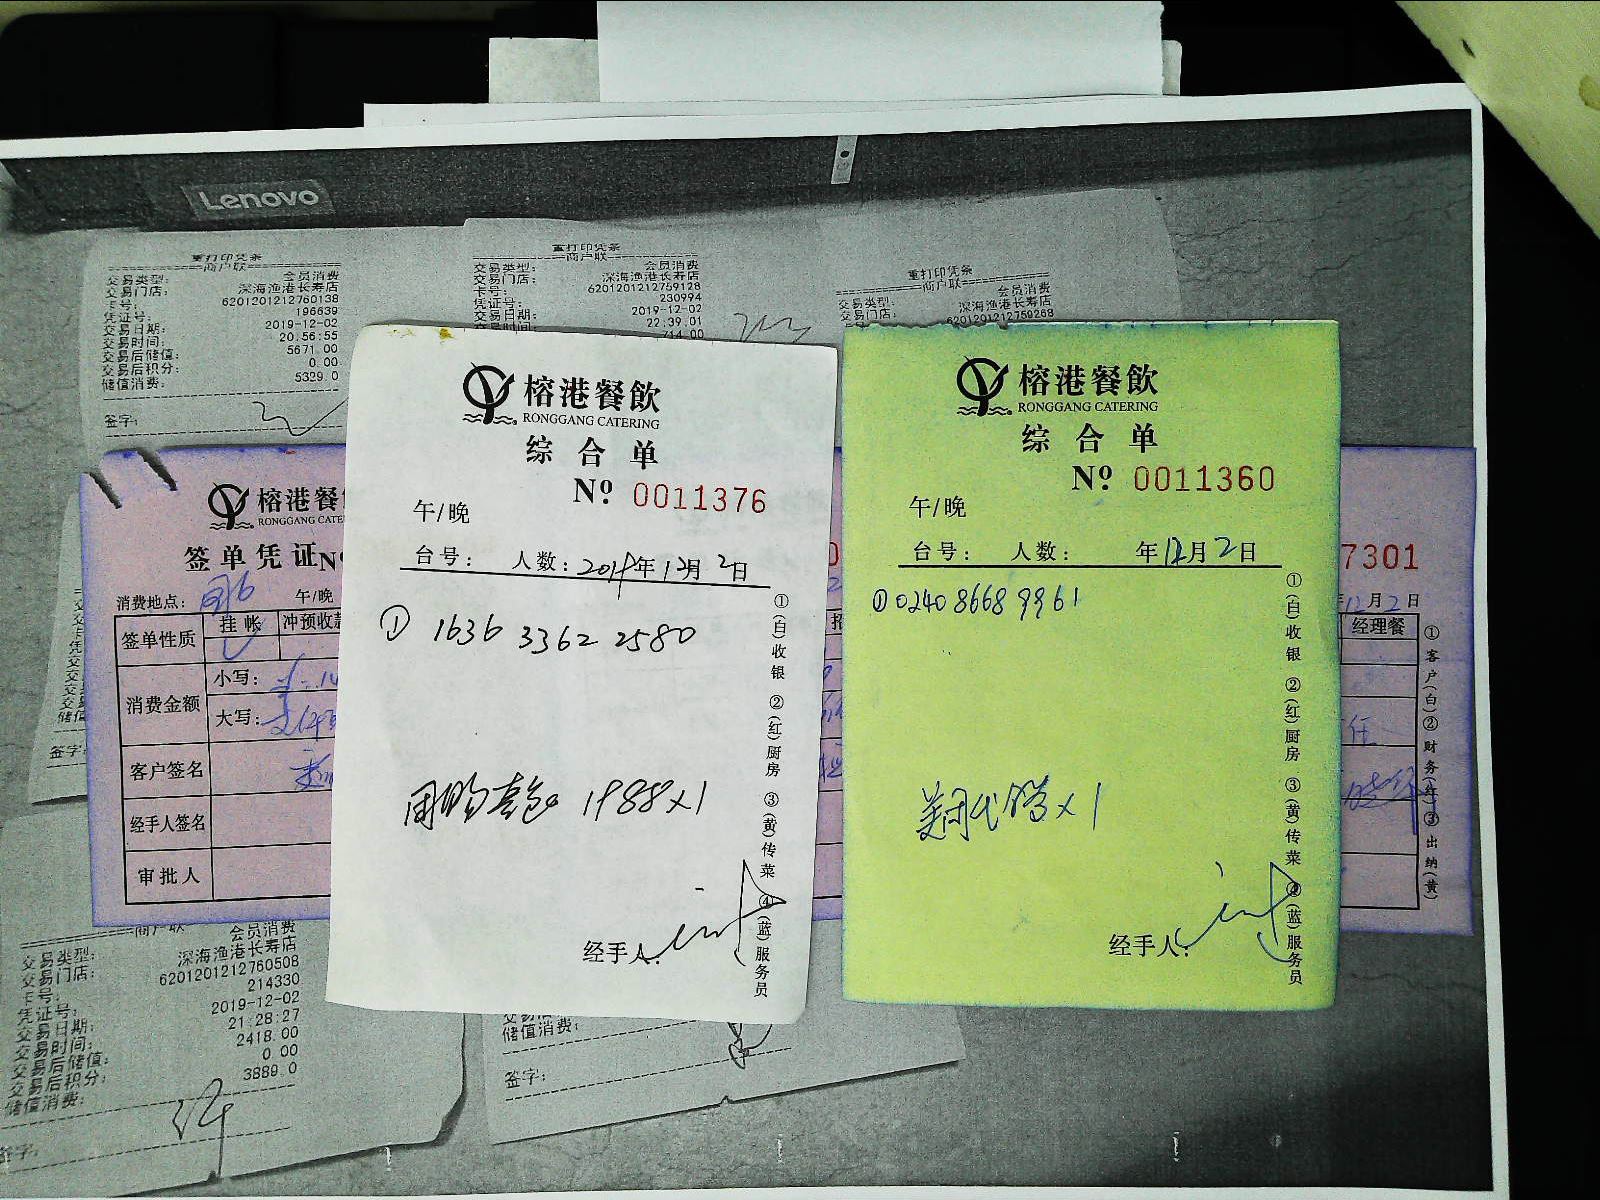 Lenovo
重打印凭条
商户联
交易类型: 会员消费
交易门店: 深海渔港长寿店
卡号: 6201201212760138
凭证号: 196639
交易日期: 2019-12-02
交易时间: 20:56:55
交易后储值: 5671.00
交易后积分: 0.00
储值消费: 5329.0
签字:
重打印凭条
商户联
交易类型: 会员消费
交易门店: 深海渔港长寿店
卡号: 6201201212759128
凭证号: 230994
交易日期: 2019-12-02
交易时间: 22:39:01
714.00
重打印凭条
商户联
交易类型: 会员消费
交易门店: 深海渔港长寿店
6201201212759268
榕港餐
RONGGANG CATE
签单凭证No
消费地点: 午/晚
签单性质 挂帐 冲预收款
消费金额 小写:
大写:
客户签名
经手人签名
审批人
榕港餐飲
RONGGANG CATERING
综合单
No 0011376
午/晚
台号: 人数: 2019年12月2日
① 1636 3362 2580
团购套包 1988x1
经手人:
①(白)收银 ②(红)厨房 ③(黄)传菜 ④(蓝)服务员
榕港餐飲
RONGGANG CATERING
综合单
No 0011360
午/晚
台号: 人数: 年12月2日
① 0240 8668 9961
美团代 x1
经手人:
①(白)收银 ②(红)厨房 ③(黄)传菜 ④(蓝)服务员
7301
12月2日
经理餐
①客户(白)②财务(红)③出纳(黄)
商户联
交易类型: 会员消费
交易门店: 深海渔港长寿店
卡号: 6201201212760508
凭证号: 214330
交易日期: 2019-12-02
交易时间: 21:28:27
交易后储值: 2418.00
交易后积分: 0.00
储值消费: 3889.0
签字:
储值消费:
签字: